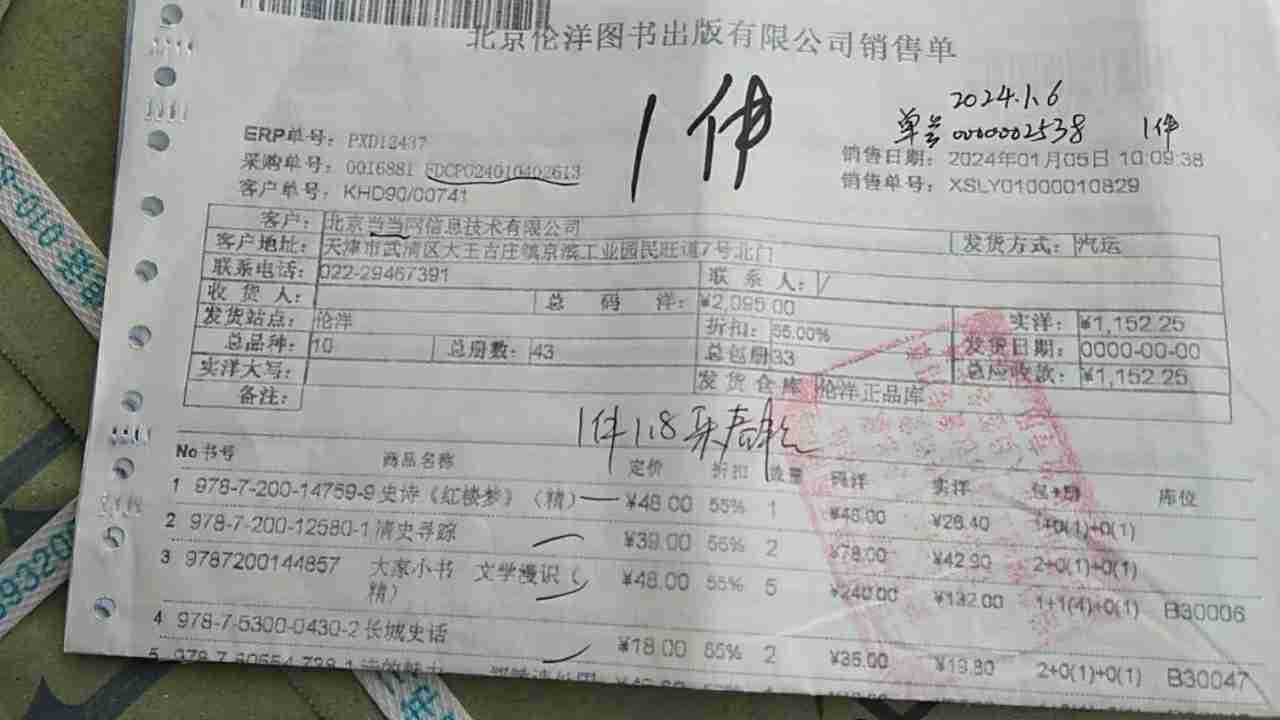 北京伦洋图书出版有限公司销售单
1件
2024.1.6
单号0000002538 1件
ERP单号: PXD12437
采购单号: 0016881 FDCP024010402613
客户单号: KHD90/00741
销售日期: 2024年01月05日 10:09:38
销售单号: XSLY01000010829
客户: 北京当当网信息技术有限公司 发货方式: 汽运
客户地址: 天津市武清区大王古庄镇京滨工业园民旺道7号北门
联系电话: 022-29467391 联系人: /
收货人: 总码洋: ¥2,095.00
发货站点: 伦洋 折扣: 55.00% 实洋: ¥1,152.25
总品种: 10 总册数: 43 总包册 33 发货日期: 0000-00-00
实洋大写: 发货仓库 伦洋正品库 总应收款: ¥1,152.25
备注:
1件1.8
No 书号 商品名称 定价 折扣 数量 码洋 实洋 包+册 库位
1 978-7-200-14759-9 史诗《红楼梦》(精) ¥48.00 55% 1 ¥48.00 ¥26.40 1+0(1)+0(1)
2 978-7-200-12580-1 清史寻踪 ¥39.00 55% 2 ¥78.00 ¥42.90 2+0(1)+0(1)
3 9787200144857 大家小书 文学漫识(精) ¥48.00 55% 5 ¥240.00 ¥132.00 1+1(4)+0(1) B30006
4 978-7-5300-0430-2 长城史话 ¥18.00 55% 2 ¥36.00 ¥19.80 2+0(1)+0(1) B30047